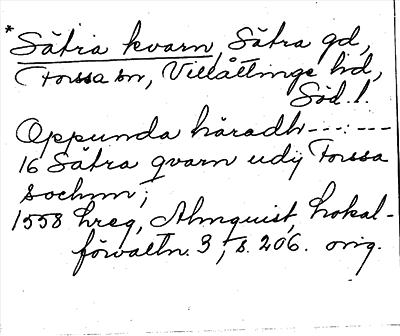 * Sätra kvarn, Sätra gd,
Forssa sn, Villåttinge hd,
Söd. l.
Oppunda häradh---:---
16 Sätra qvarn udij Forssa
sochnn;
1558 hreg, Almquist, Lokal-
förvaltn. 3, s. 206. orig.